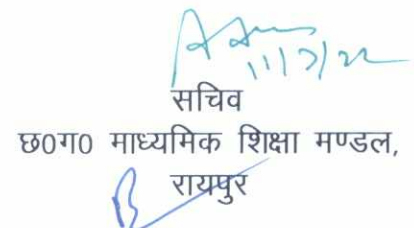 11/7/22
सचिव
छ0ग0 माध्यमिक शिक्षा मण्डल,
रायपुर